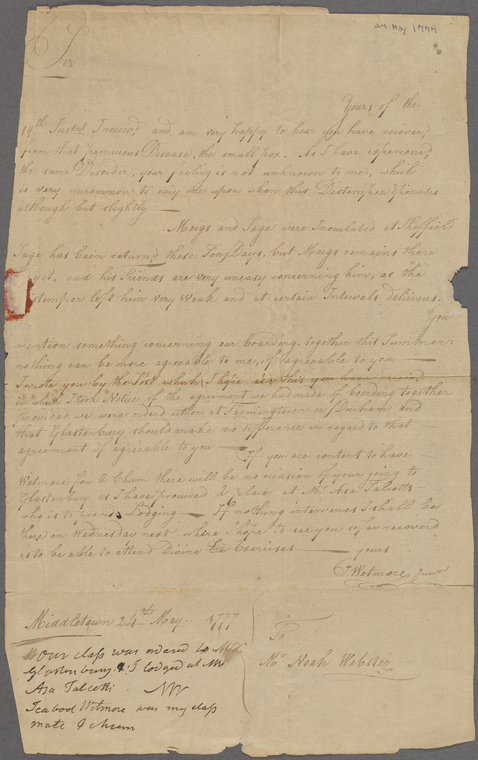 24 May 1777
Sir
Yours of the
19th Instant Receiv,d and am very happy to hear you have recover,d
from that pernicious Disease, the small pox. As I have experienced
the same Disorder, your feeling is not unknown to me, which
is very uncommon to every one upon whom this Distemper operates
although but slightly —
Meigs and Sage were Inoculated at Sheffield
Sage has been returnd these Ten Days, but Meigs remains there
yet, and his Friends are very uneasy concerning him, as the
stemper left him very Weak and at certain Intervals delirious.
You
mention something concerning our boarding together this Summer:
nothing can be more agreeable to me, if agreeable to you —
I wrote you by the Post which I hope ere this you have receivd,
in which I took Notice of the agreement we had made of boarding together
provided we were orderd either at Farmingtown or Durham and
that Glastenbury should make no difference in regard to that
agreement if agreeable to you —
If you are content to have
Wetmore for a Chum there will be no occasion of your going to
Glastenbury as I have procured a place at Mr Asa Talcotts
who is to provide Lodging — If nothing intervenes I shall be
there on Wednesday next where I hope to see you so far recoverd
as to be able to attend Divine Exercises — yours
I Wetmore Junr
Middletown 24th May 1777
To
Mr Noah Webster
Our class was ordered to
Glastenbury & I lodged at Mr
Asa Talcotts. NW
Icabod Wetmore was my class
mate & chum